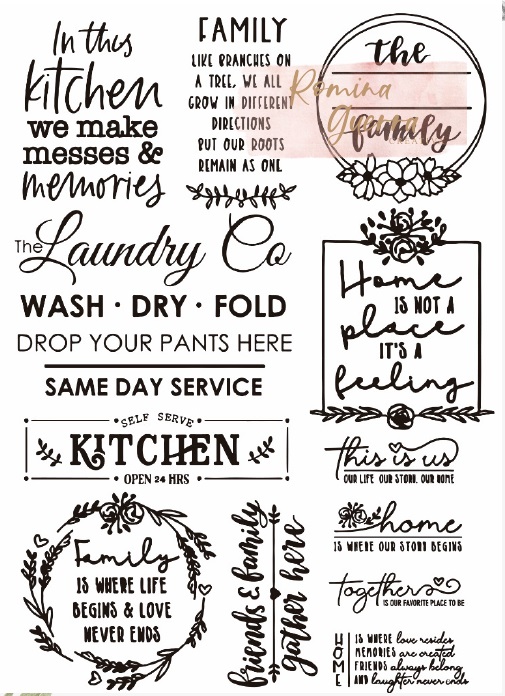 In this
kitchen
we make
messes &
memories
FAMILY
LIKE BRANCHES ON
A TREE, WE ALL
GROW IN DIFFERENT
DIRECTIONS
BUT OUR ROOTS
REMAIN AS ONE
the
Romina
family
The Laundry Co
WASH · DRY · FOLD
DROP YOUR PANTS HERE
SAME DAY SERVICE
Home
IS NOT A
place
IT'S A
feeling
SELF SERVE
KITCHEN
OPEN 24 HRS
this is us
OUR LIFE. OUR STORY. OUR HOME
home
IS WHERE OUR STORY BEGINS
together
IS OUR FAVORITE PLACE TO BE
Family
IS WHERE LIFE
BEGINS & LOVE
NEVER ENDS
friends & family
gather here
HOME
IS WHERE love resides
MEMORIES are created
FRIENDS always belong
AND laughter never ends